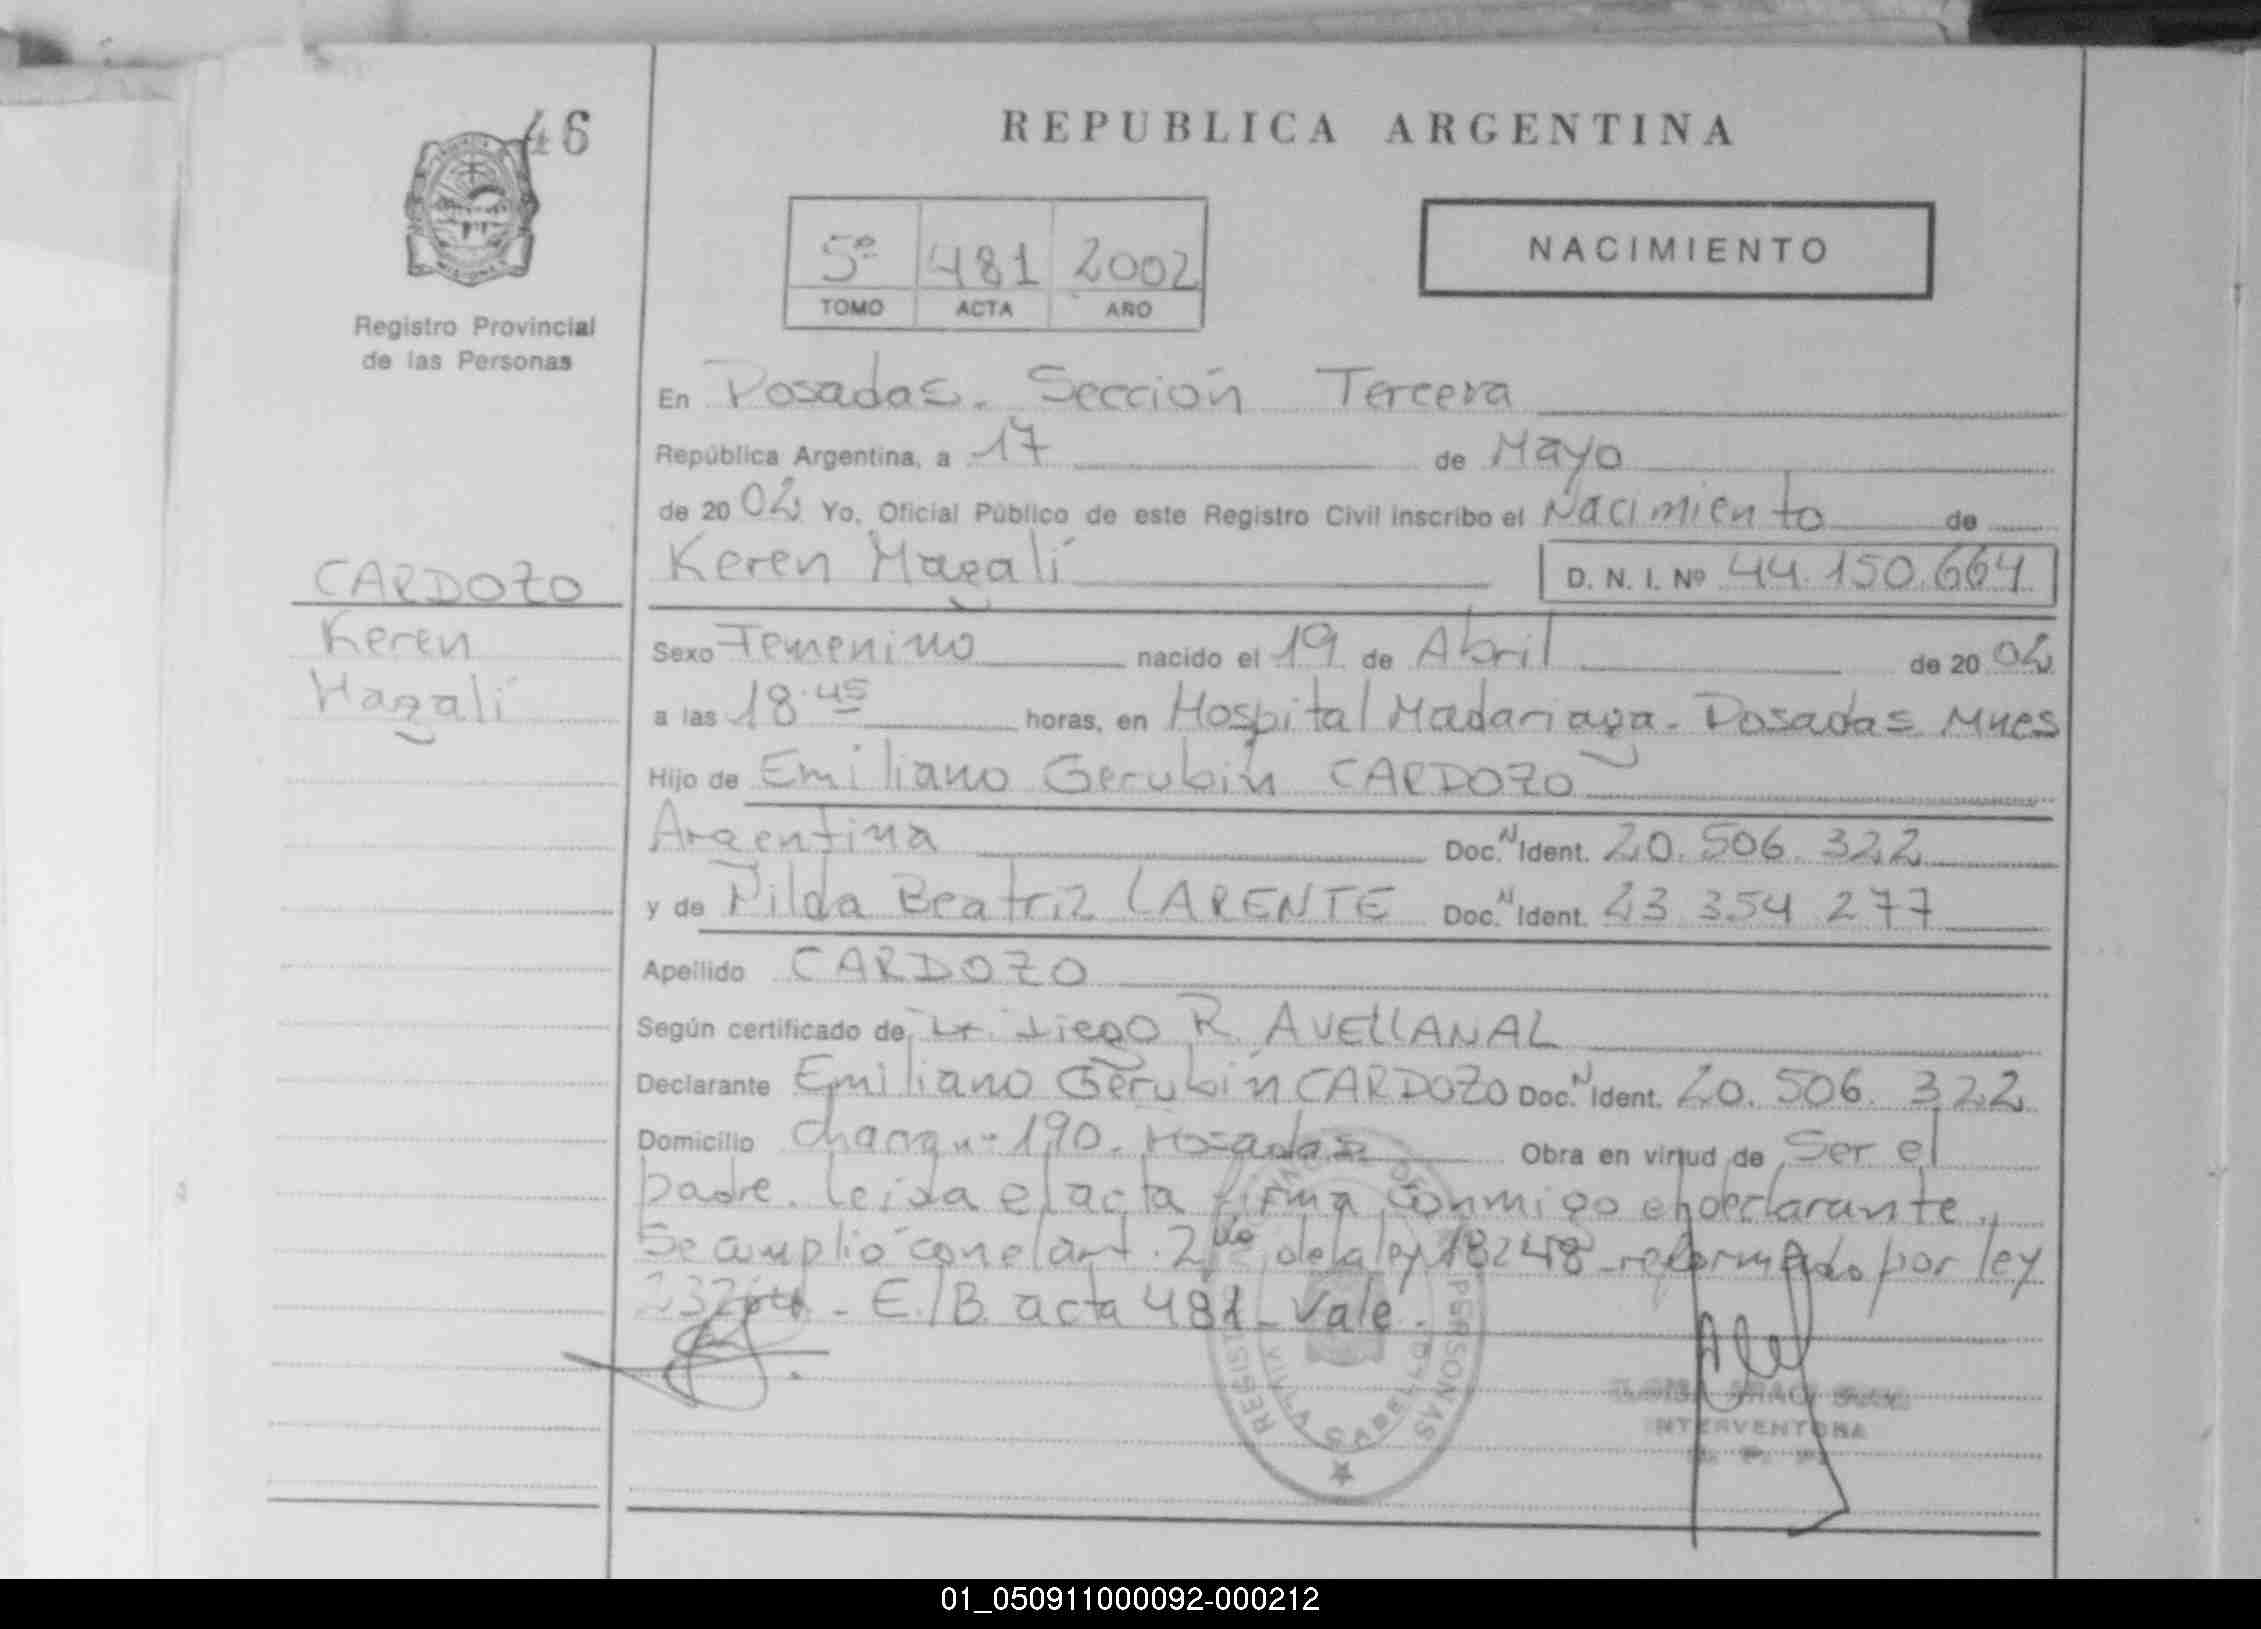 46
REPUBLICA ARGENTINA
5º 481 2002
TOMO ACTA AÑO
NACIMIENTO
Registro Provincial
de las Personas
En Posadas. Sección Tercera
República Argentina, a 17 de Mayo
de 2002 Yo, Oficial Público de este Registro Civil inscribo el Nacimiento de
Keren Magalí D. N. I. Nº 44.150.664
CARDOZO
Keren
Magalí
Sexo Femenino nacido el 19 de Abril de 2002
a las 18.45 horas, en Hospital Madariaga. Posadas Mnes
Hijo de Emiliano Gerubín CARDOZO
Argentina Doc. N Ident. 20.506.322
y de Nilda Beatriz LARENTE Doc. N Ident. 23.354.277
Apellido CARDOZO
Según certificado de Dr. Diego R. AVELLANAL
Declarante Emiliano Gerubín CARDOZO Doc. N Ident. 20.506.322
Domicilio Chacra 190. Posadas Obra en virtud de Ser el
padre. Leída el acta firma conmigo el declarante.
Se cumplió con el art. 2do de la ley 18248 reformado por ley
- E/B. acta 481 - Vale.
REGISTRO DE PERSONAS
INTERVENTORA
01_050911000092-000212